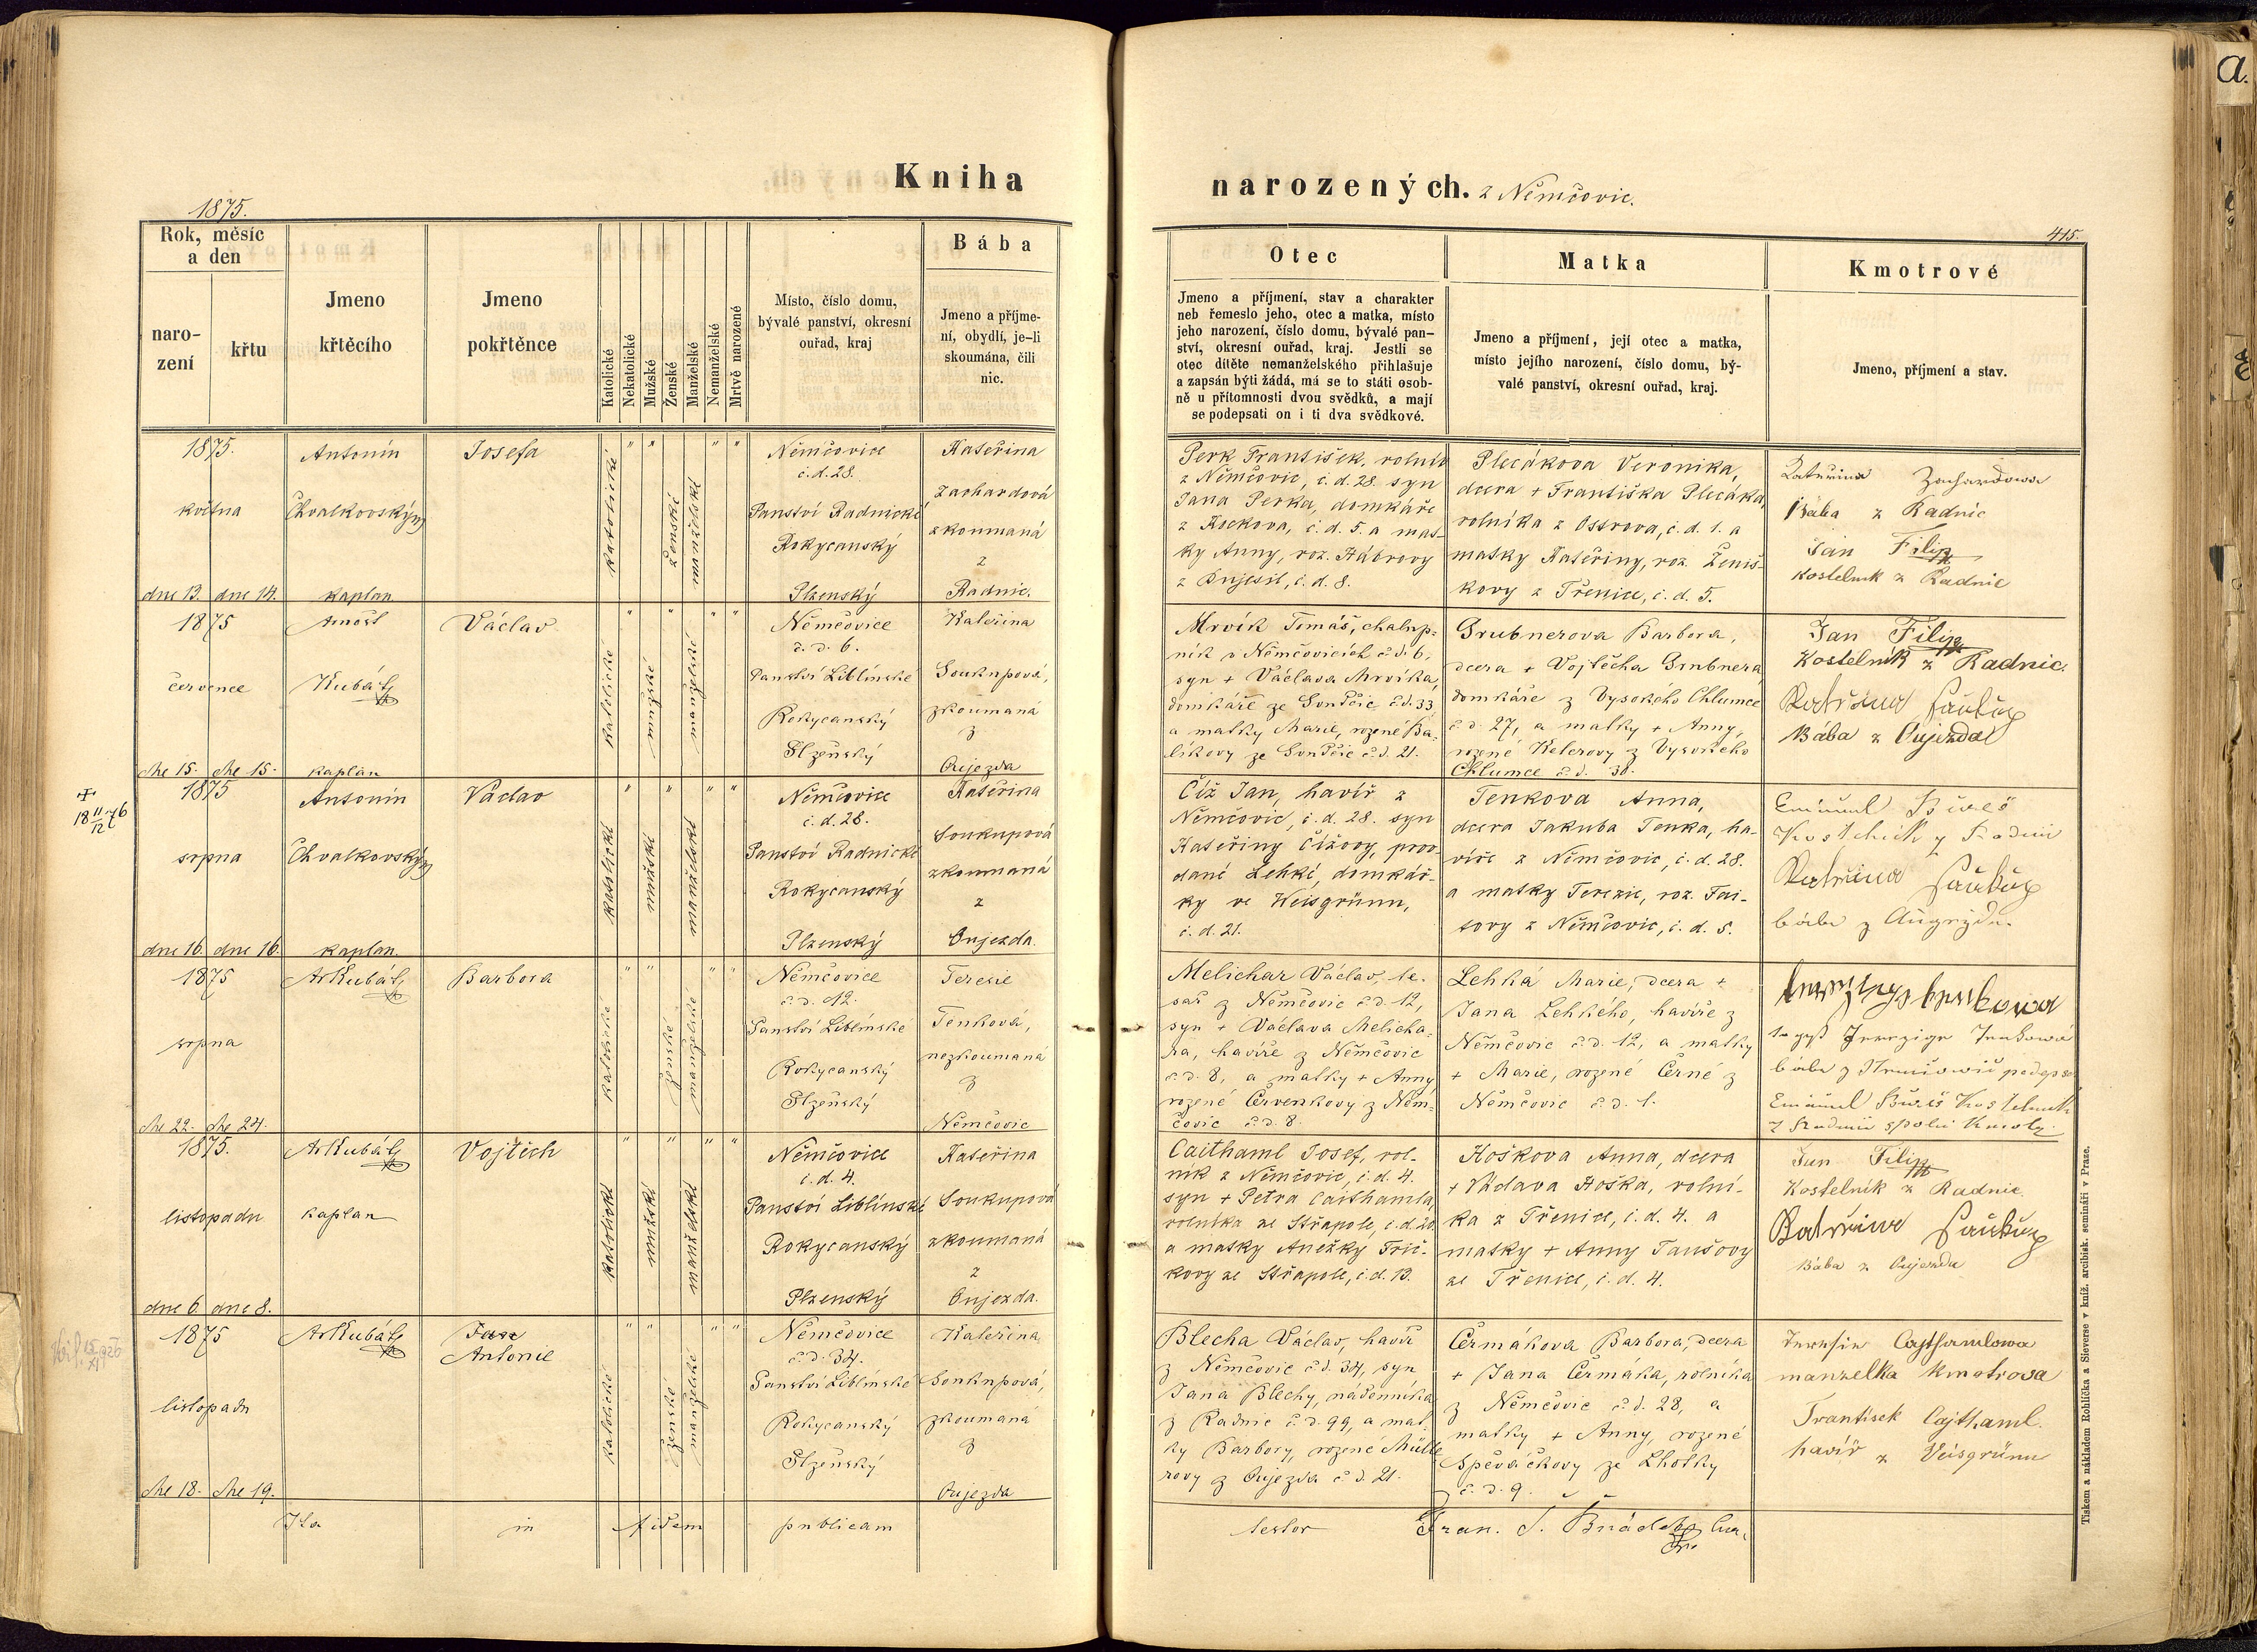 Kniha
narozených. z Němčovic.
1875.
415.
a.
Rok, měsíc
a den
naro-
zení
křtu
Jmeno
křtěcího
Jmeno
pokřtěnce
Katolické
Nekatolické
Mužské
Ženské
Manželské
Nemanželské
Mrtvě narozené
Místo, číslo domu,
bývalé panství, okresní
ouřad, kraj
Bába
Jmeno a příjme-
ní, obydlí, je-li
skoumána, čili
nic.
Otec
Jmeno a příjmení, stav a charakter
neb řemeslo jeho, otec a matka, místo
jeho narození, číslo domu, bývalé pan-
ství, okresní ouřad, kraj. Jestli se
otec dítěte nemanželského přihlašuje
a zapsán býti žádá, má se to státi osob-
ně u přítomnosti dvou svědků, a mají
se podepsati on i ti dva svědkové.
Matka
Jmeno a příjmení, její otec a matka,
místo jejího narození, číslo domu, bý-
valé panství, okresní ouřad, kraj.
Kmotrové
Jmeno, příjmení a stav.
1875.
května
dne 13. dne 14.
Antonín
Chvalkovský
kaplan.
Josefa
katolické
ženské
manželské
Němčovice
č. d. 28.
Panství Radnické
Rokycanský
Plzenský
Kateřina
Zachardová
zkoumaná
z
Radnic.
Perk František, rolník
z Němčovic, č. d. 28. syn
Jana Perka, domkáře
č. d. 5. a mat-
ky Anny, roz. Hábrovy
č. d. 8.
Plecákova Veronika,
dcera + Františka Plecáka,
rolníka z Ostrova, č. d. 1. a
matky Kateřiny, roz. Ženíš-
kovy z Třenice, č. d. 5.
Zachardowa
Bába z Radnic
Jan Filip
kostelník z Radnic
1875
července
dne 15. dne 15.
Arnošt
Kubát
kaplán
Václav
katolické
mužské
manželské
Němčovice
č. d. 6.
Panství Liblínské
Rokycanský
Plzeňský
Kateřina
Soukupová,
zkoumaná
z
Oujezda
Mrvík Tomáš, chalup-
ník v Němčovicích č. d. 6,
syn + Václava Mrvíka,
domkáře č. d. 33
a matky Marie, rozené Ba-
č. d. 21.
Grubnerova Barbora,
dcera + Vojtěcha Grubnera
domkáře z Vysokého Chlumce
č. d. 27, a matky + Anny,
rozené Kelerovy z Vysokého
Chlumce č. d. 38.
Jan Filip
Kostelník z Radnic.
Bába z Oujezda
+
1875
srpna
dne 16. dne 16.
Antonín
Chvalkovský
kaplan.
Václav
katolické
mužské
manželské
Němčovice
č. d. 28.
Panství Radnické
Rokycanský
Plzenský
Kateřina
Soukupová
zkoumaná
z
Oujezda.
Číž Jan, havíř z
Němčovic, č. d. 28. syn
Kateřiny Čížovy, prov-
dané Lehké, domkář-
ky ve Weisgrünu,
č. d. 21.
Tenkova Anna,
dcera Jakuba Tenka, ha-
víře z Němčovic, č. d. 28.
a matky Terezie, roz. Fai-
tovy z Němčovic, č. d. 5.
Emanuel Bureš
Kostelník z Radnic
1875
srpna
dne 22. dne 24.
Ar Kubát
Barbora
katolické
ženské
manželské
Němčovice
č. d. 12.
Panství Liblínské
Rokycanský
Plzeňský
Terezie
Tenková,
nezkoumaná
z
Němčovic
Melichar Václav, te-
sař z Němčovic č. d. 12,
syn + Václava Melicha-
ra, havíře z Němčovic
č. d. 8, a matky + Anny,
rozené Červenkovy z Něm-
čovic č. d. 8.
Lehká Marie, dcera +
Jana Lehkého, havíře z
Němčovic č. d. 12, a matky
+ Marie, rozené Černé z
Němčovic č. d. 1.
Emanuel Bureš Kostelník
1875.
listopadu
dne 6. dne 8.
Ar Kubát
kaplan
Vojtěch
katolické
mužské
manželské
Němčovice
č. d. 4.
Panství Liblínské
Rokycanský
Plzenský
Kateřina
Soukupová
zkoumaná
z
Oujezda.
Caithaml Josef, rol-
ník z Němčovic, č. d. 4.
syn + Petra Caithamla,
rolníka ze Střapole, č. d. 20.
a matky Anežky Frič-
kovy ze Střapole, č. d. 13.
Hoškova Anna, dcera
+ Václava Hoška, rolní-
ka z Třenice, č. d. 4. a
matky + Anny Taušovy
ze Třenice, č. d. 4.
Jan Filip
Kostelník z Radnic.
Bába z Oujezda
1875
listopadu
dne 18. dne 19.
Ar Kubát
Antonie
katolické
ženské
manželské
Němčovice
č. d. 34.
Panství Liblínské
Rokycanský
Plzeňský
Kateřina
Soukupová,
zkoumaná
z
Oujezda
Blecha Václav, havíř
z Němčovic č. d. 34, syn
Jana Blechy, nádenníka
z Radnic č. d. 99, a mat-
ky Barbory, rozené Mülle-
rovy z Oujezda č. d. 21.
Čermákova Barbora, dcera
+ Jana Čermáka, rolníka
z Němčovic č. d. 28, a
matky + Anny, rozené
Spěváčkovy ze Lhotky
č. d. 9.
Cajthamlowa
manželka kmotrova
Frantisek Cajthaml.
havíř z Veisgrünu
Ita in fidem publicam
testor Fran. S.
Tiskem a nákladem Rohlíčka a Sieverse v kníž. arcibisk. semináři v Praze.